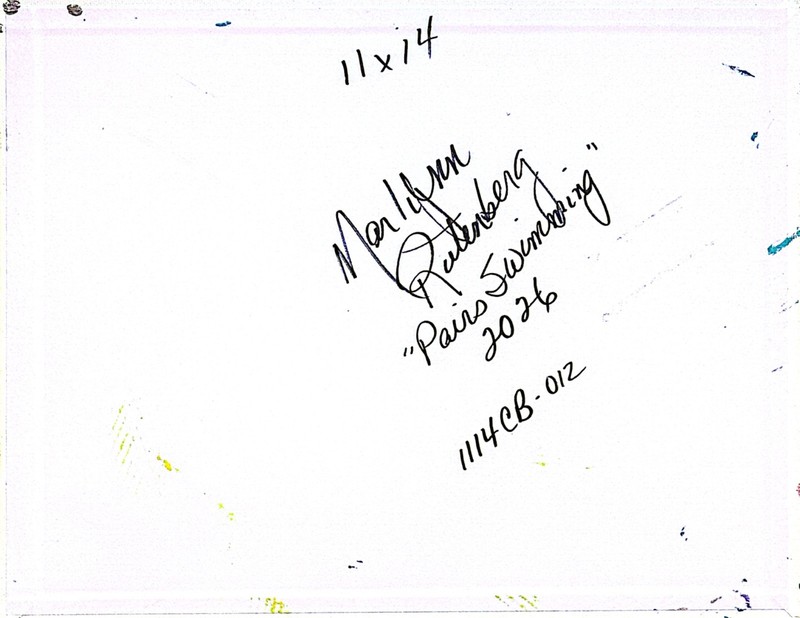 11x14
Marilynn
Rutenberg
"Pairs Swimming"
2026
1114CB-012